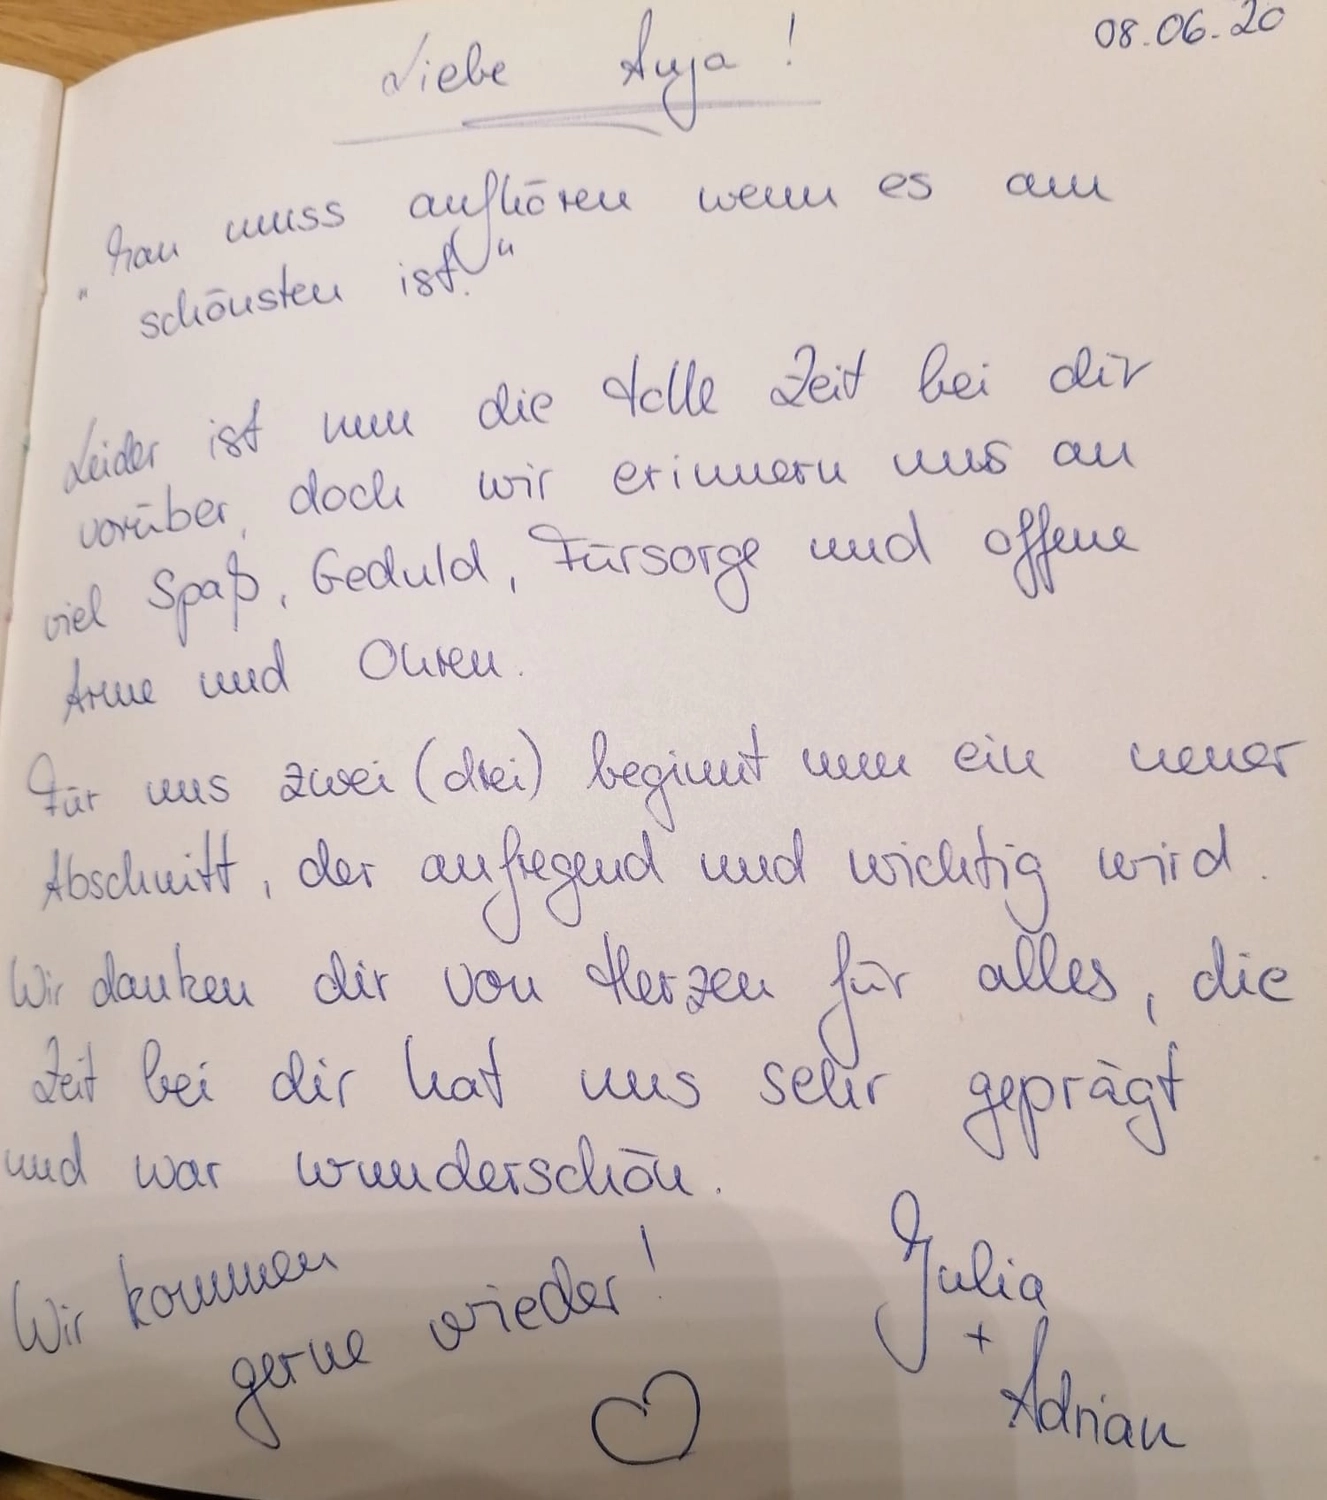 08.06.20
Liebe Anja!
"Man muss aufhören wenn es am
schönsten ist."
Leider ist nun die tolle Zeit bei dir
vorüber, doch wir erinnern uns an
viel Spaß, Geduld, Fürsorge und offene
Arme und Ohren.
Für uns zwei (drei) beginnt nun ein neuer
Abschnitt, der aufregend und wichtig wird.
Wir danken dir von Herzen für alles, die
Zeit bei dir hat uns sehr geprägt
und war wunderschön.
Wir kommen
gerne wieder!
Julia
+
Adrian